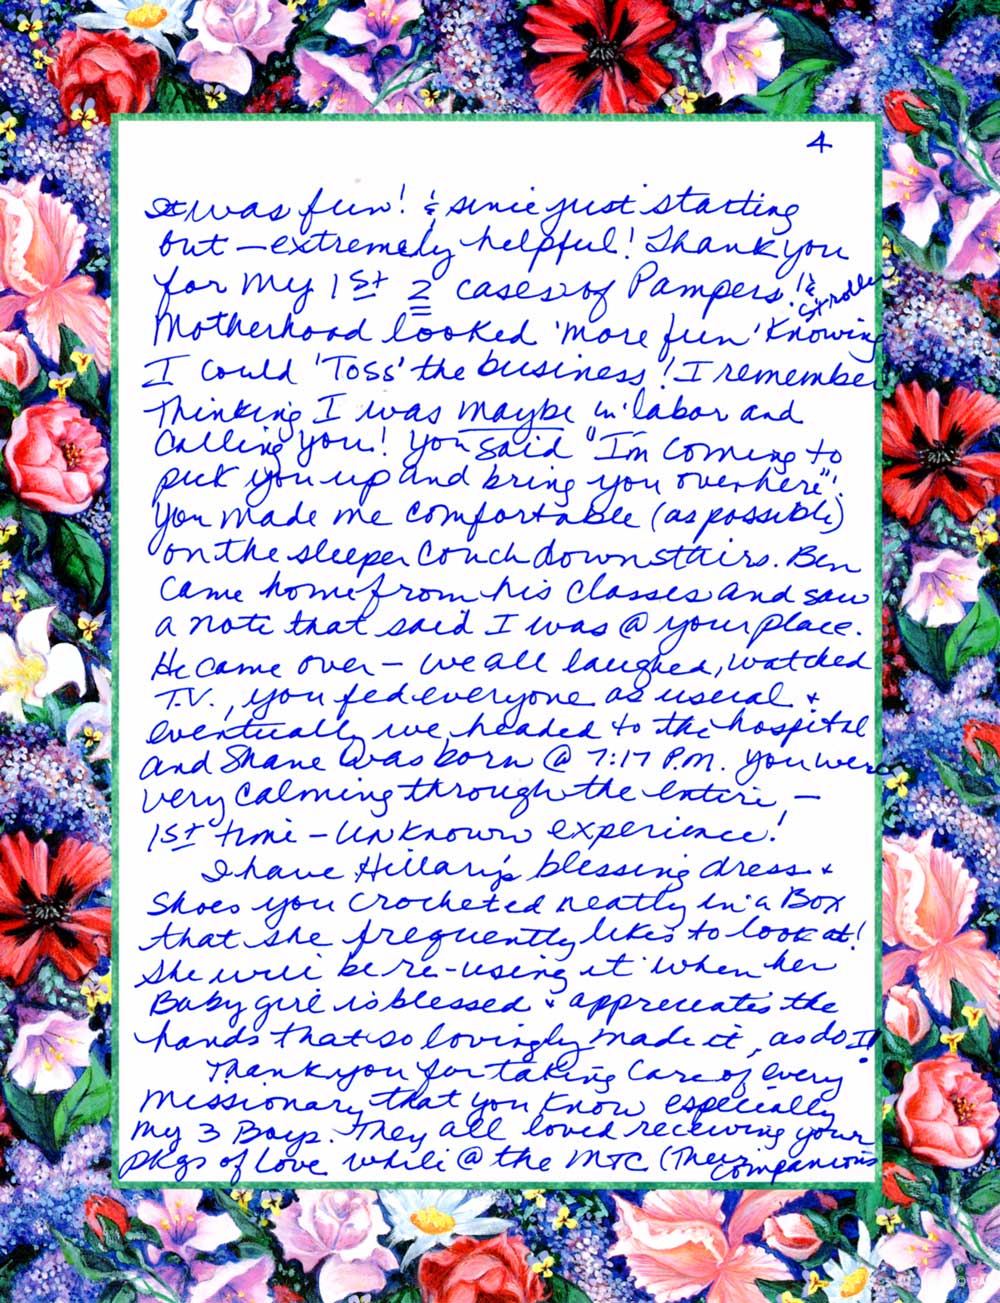 4
It was fun! & since just starting
out — extremely helpful! Thank you
for my 1st 2 cases of Pampers!
Motherhood looked 'more fun' knowing
I could 'Toss' the business! I remember
thinking I was maybe in labor and
calling you! You said "I'm coming to
pick you up and bring you over here".
You made me comfortable (as possible)
on the sleeper couch downstairs. Ben
came home from his classes and saw
a note that said I was @ your place.
He came over – we all laughed, watched
T.V., you fed everyone as usual +
eventually we headed to the hospital
and Shane was born @ 7:17 P.M. You were
very calming through the entire, –
1st time – unknown experience!
I have Hillary's blessing dress +
shoes you crocheted neatly in a Box
that she frequently likes to look at!
She will be re-using it when her
Baby girl is blessed & appreciates the
hands that so lovingly made it, as do I!
Thank you for taking care of every
missionary that you know especially
my 3 Boys. They all loved receiving your
pkgs of love while @ the MTC (Their
companions